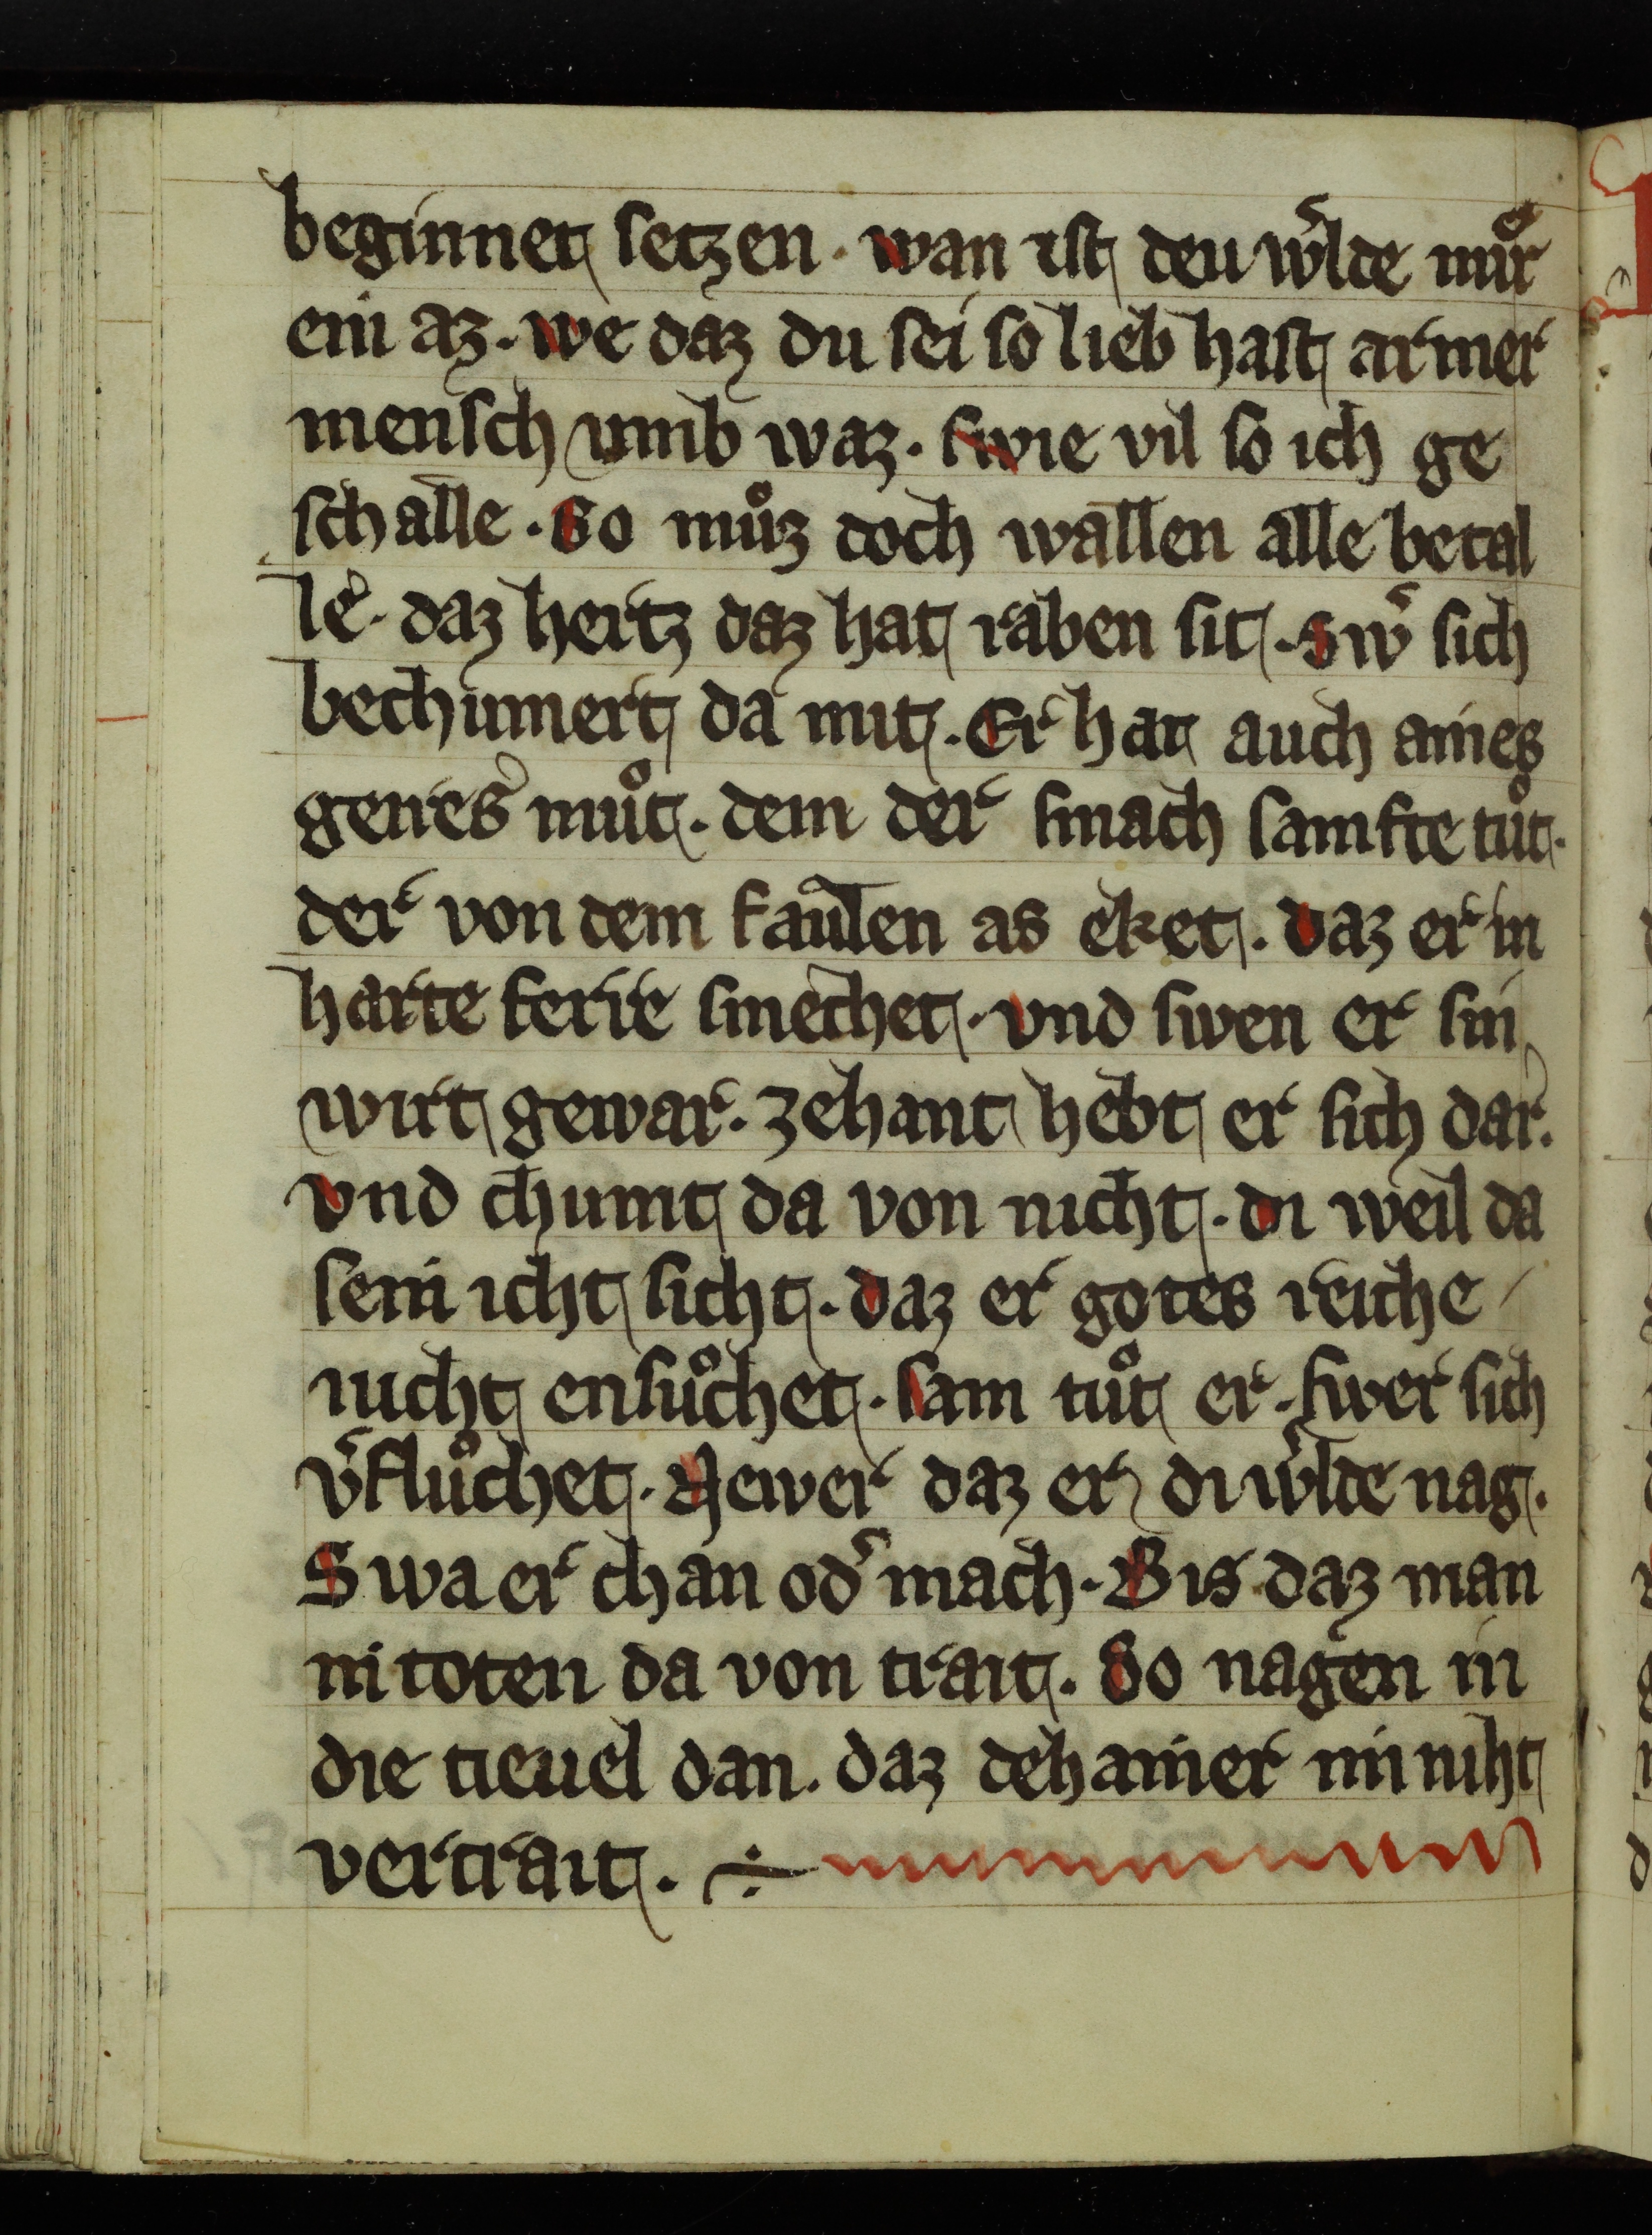 beginnet setzen · wan ist deu w͛lde muͦr
ein az · we daz du sei so lieb hast armer
mensch umb waz · swie vil so ich ge
schalle · So muͦz doch wallen alle betal
le͛ · daz hertz daz hat raben sit · Sw͛ sich
bechumert da mit · Er hat auch aines
genes͛ muͦt · dem der smach samfte tuͦt ·
der von dem faulen as eket · daz er in
harte ferre smechet · vnd swen er sin
wirt gewar · zehant hebt er sich dar ·
vnd chumt da von nicht · di weil da
sein icht sicht · daz er gotes reiche
nicht ensuͦchet · sam tuͦt er · swer sich
v͛fluͦchet · Newer daz er di w͛lde nag ·
Swa er chan od͛ mach · Bis daz man
in toten da von trait · So nagen in
die tieuel dan · daz dehainer in niht
vertrait · ÷